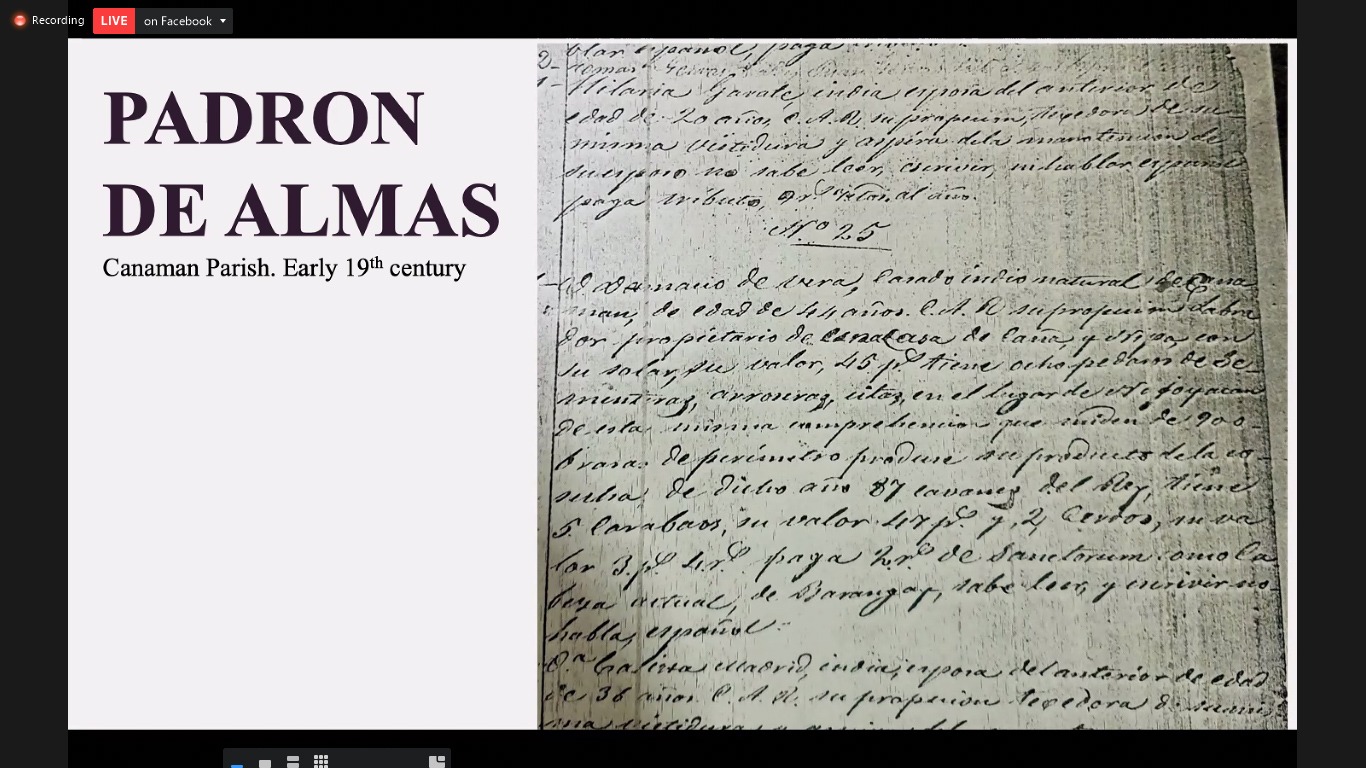 Recording
LIVE on Facebook
PADRON
DE ALMAS
Canaman Parish. Early 19th century
blar español, paga
2-
1- Hilaria Garale, india espoza del anterior de
edad de 20 años, C. A. R. su profecion, texedora de su
misma vistidura y aspira dela manutencion de
su espozo no sabe leer, escrivir, ni hablar español
paga tributo, al año.
Nº 25
D. de Vera, Casado indio natural de Cana
man, de edad de 44 años. C. A. R. su profecion Labra
dor propietario de una Casa de Caña, y Nipa, con
su solar, su valor, 45 ps. tiene ocho pedasos de Se-
menteras, arrozeras, citas, en el lugar de
de esta misma comprehencion que miden de 900-
brasas de perimetro produce su producto de la co-
secha de dicho año 87 cavanes del Rey, tiene
5. Carabaos, su valor 47 ps. y 2, Cerdos, su va
lor 3. ps. 4 rs. paga 2. rs. de Sanctorum como Ca
beza actual, de Barangay, sabe leer, y escrivir no
habla, español
D.a Madrid, india, espoza del anterior de edad
de 36 años. C. A. R. su profecion texedora de su mis
ma vistidura y